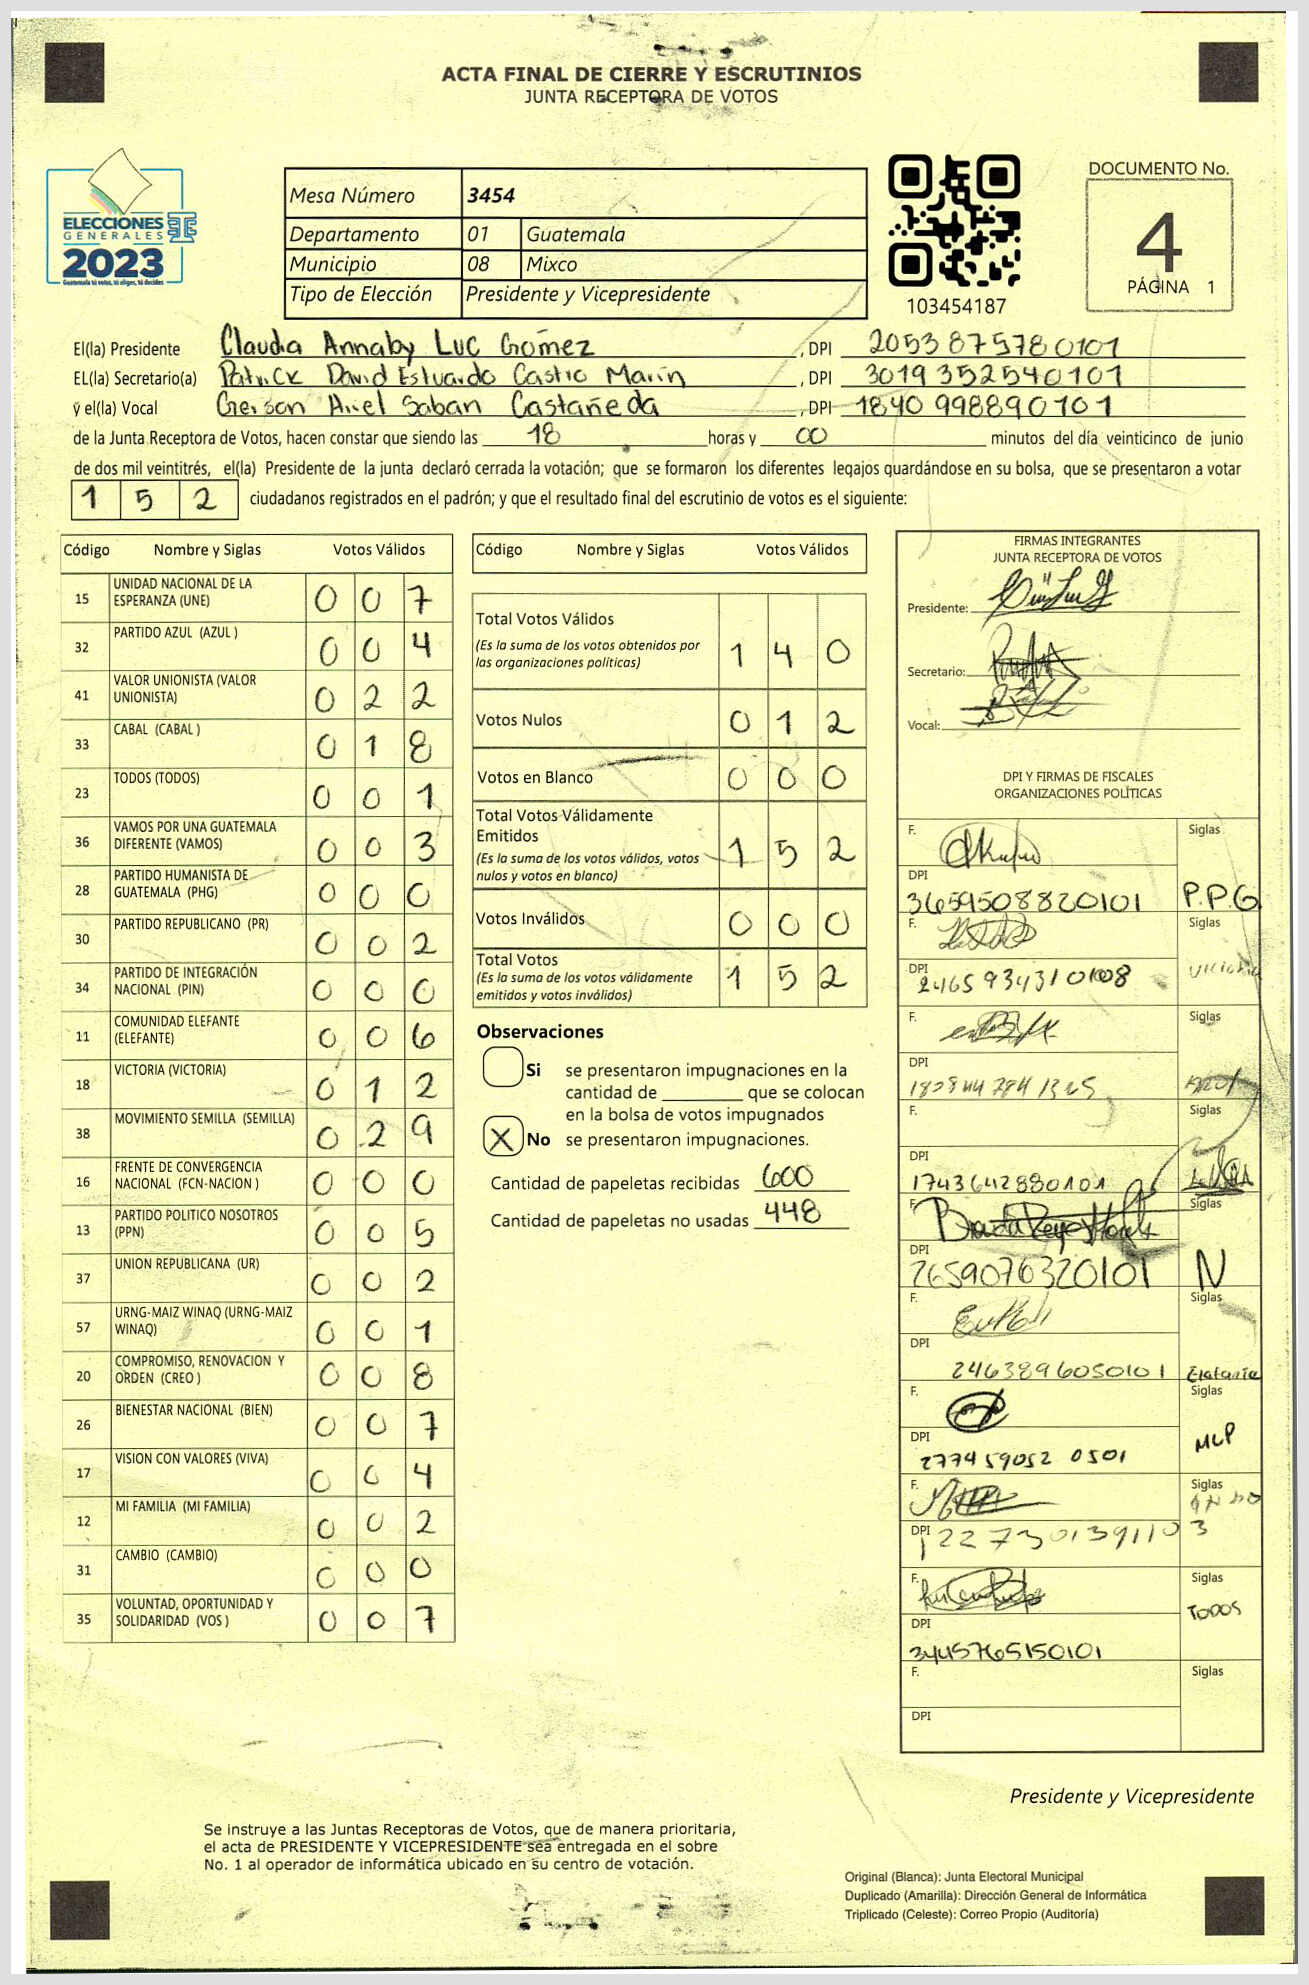 ACTA FINAL DE CIERRE Y ESCRUTINIOS
JUNTA RECEPTORA DE VOTOS
ELECCIONES
GENERALES
2023
Guatemala tú votas, tú eliges, tú decides
Mesa Número 3454
Departamento 01 Guatemala
Municipio 08 Mixco
Tipo de Elección Presidente y Vicepresidente
103454187
DOCUMENTO No.
4
PÁGINA 1
El(la) Presidente Claudia Annaby Luc Gómez , DPI 2053875780101
EL(la) Secretario(a) Patrick David Estuardo Castro Marín , DPI 3019352540101
y el(la) Vocal Gerson Ariel Saban Castañeda , DPI 1840998890101
de la Junta Receptora de Votos, hacen constar que siendo las 18 horas y 00 minutos del día veinticinco de junio
de dos mil veintitrés, el(la) Presidente de la junta declaró cerrada la votación; que se formaron los diferentes legajos guardándose en su bolsa, que se presentaron a votar
1 5 2 ciudadanos registrados en el padrón; y que el resultado final del escrutinio de votos es el siguiente:
Código Nombre y Siglas Votos Válidos
15 UNIDAD NACIONAL DE LA ESPERANZA (UNE) 0 0 7
32 PARTIDO AZUL (AZUL ) 0 0 4
41 VALOR UNIONISTA (VALOR UNIONISTA) 0 2 2
33 CABAL (CABAL ) 0 1 8
23 TODOS (TODOS) 0 0 1
36 VAMOS POR UNA GUATEMALA DIFERENTE (VAMOS) 0 0 3
28 PARTIDO HUMANISTA DE GUATEMALA (PHG) 0 0 0
30 PARTIDO REPUBLICANO (PR) 0 0 2
34 PARTIDO DE INTEGRACIÓN NACIONAL (PIN) 0 0 0
11 COMUNIDAD ELEFANTE (ELEFANTE) 0 0 6
18 VICTORIA (VICTORIA) 0 1 2
38 MOVIMIENTO SEMILLA (SEMILLA) 0 2 9
16 FRENTE DE CONVERGENCIA NACIONAL (FCN-NACION ) 0 0 0
13 PARTIDO POLITICO NOSOTROS (PPN) 0 0 5
37 UNION REPUBLICANA (UR) 0 0 2
57 URNG-MAIZ WINAQ (URNG-MAIZ WINAQ) 0 0 1
20 COMPROMISO, RENOVACION Y ORDEN (CREO ) 0 0 8
26 BIENESTAR NACIONAL (BIEN) 0 0 7
17 VISION CON VALORES (VIVA) 0 0 4
12 MI FAMILIA (MI FAMILIA) 0 0 2
31 CAMBIO (CAMBIO) 0 0 0
35 VOLUNTAD, OPORTUNIDAD Y SOLIDARIDAD (VOS ) 0 0 7
Código Nombre y Siglas Votos Válidos
Total Votos Válidos
(Es la suma de los votos obtenidos por
las organizaciones políticas) 1 4 0
Votos Nulos 0 1 2
Votos en Blanco 0 0 0
Total Votos Válidamente
Emitidos
(Es la suma de los votos válidos, votos
nulos y votos en blanco) 1 5 2
Votos Inválidos 0 0 0
Total Votos
(Es la suma de los votos válidamente
emitidos y votos inválidos) 1 5 2
Observaciones
Si se presentaron impugnaciones en la
cantidad de ________ que se colocan
en la bolsa de votos impugnados
X No se presentaron impugnaciones.
Cantidad de papeletas recibidas 600
Cantidad de papeletas no usadas 448
FIRMAS INTEGRANTES
JUNTA RECEPTORA DE VOTOS
Presidente:
Secretario:
Vocal:
DPI Y FIRMAS DE FISCALES
ORGANIZACIONES POLÍTICAS
F. Siglas
DPI
3659508820101 P.P.G
F. Siglas
DPI
2465934310108
F. Siglas
DPI
F. Siglas
DPI
1743642880101
F. Siglas
DPI
2659076320101 N
F. Siglas
DPI
2463896050101 Elefante
F. Siglas
DPI
277459052 0501 MLP
F. Siglas
DPI
F. Siglas
TODOS
DPI
3445765150101
F. Siglas
DPI
Presidente y Vicepresidente
Se instruye a las Juntas Receptoras de Votos, que de manera prioritaria,
el acta de PRESIDENTE Y VICEPRESIDENTE sea entregada en el sobre
No. 1 al operador de informática ubicado en su centro de votación.
Original (Blanca): Junta Electoral Municipal
Duplicado (Amarilla): Dirección General de Informática
Triplicado (Celeste): Correo Propio (Auditoría)